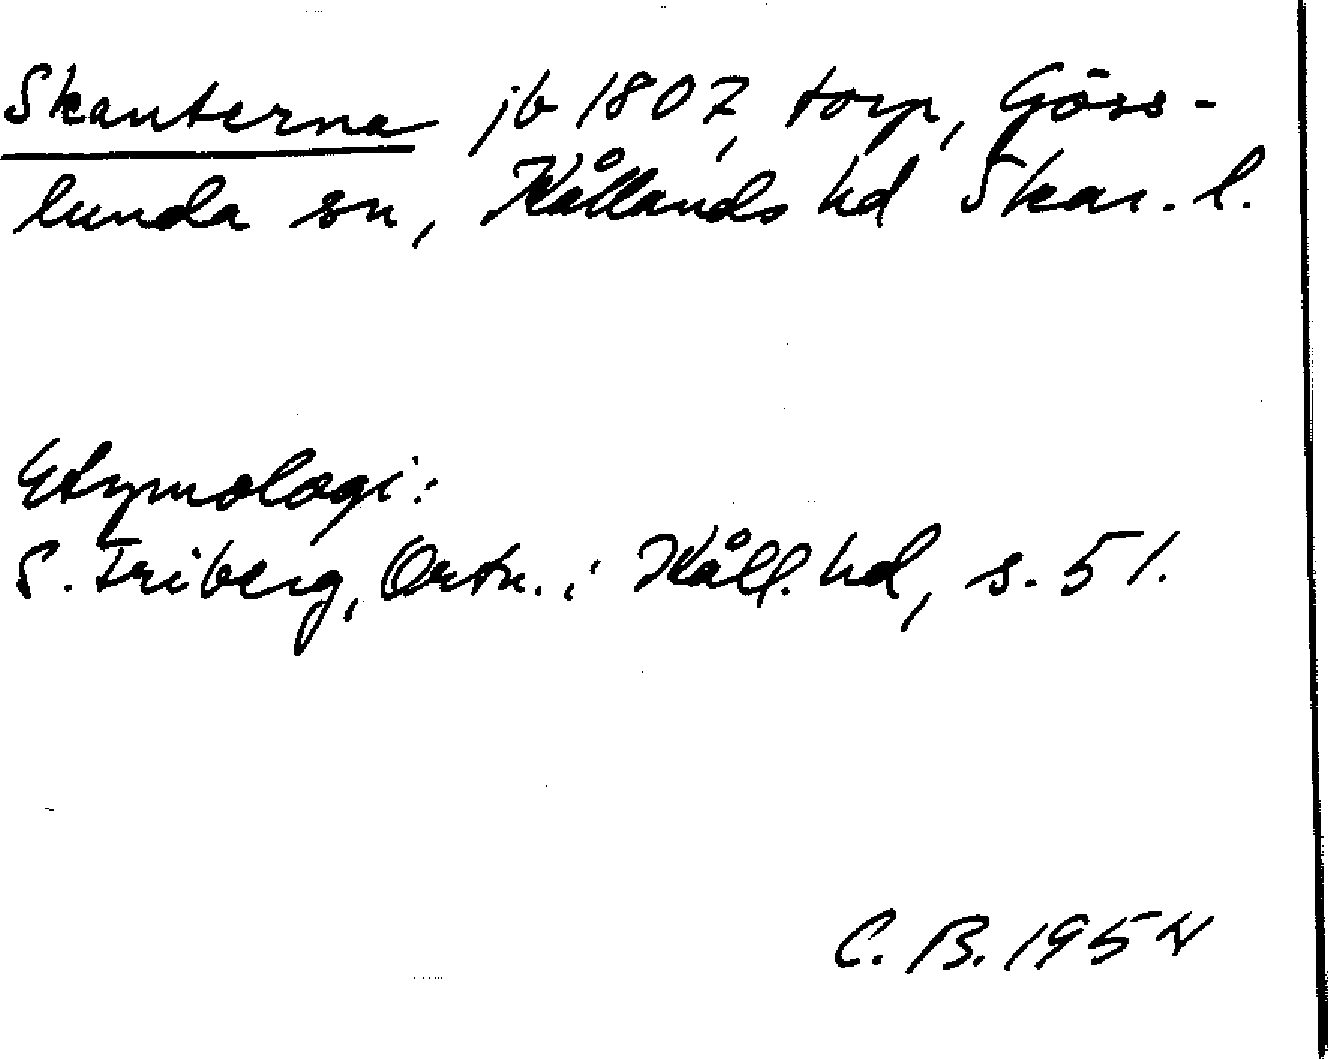 Skanterna jb 1807, torp, Göss-
lunda sn, Kållands hd Skar. l.
Etymologi:
S. Friberg, Ortn. i Kåll. hd, s. 51.
C. B. 1954